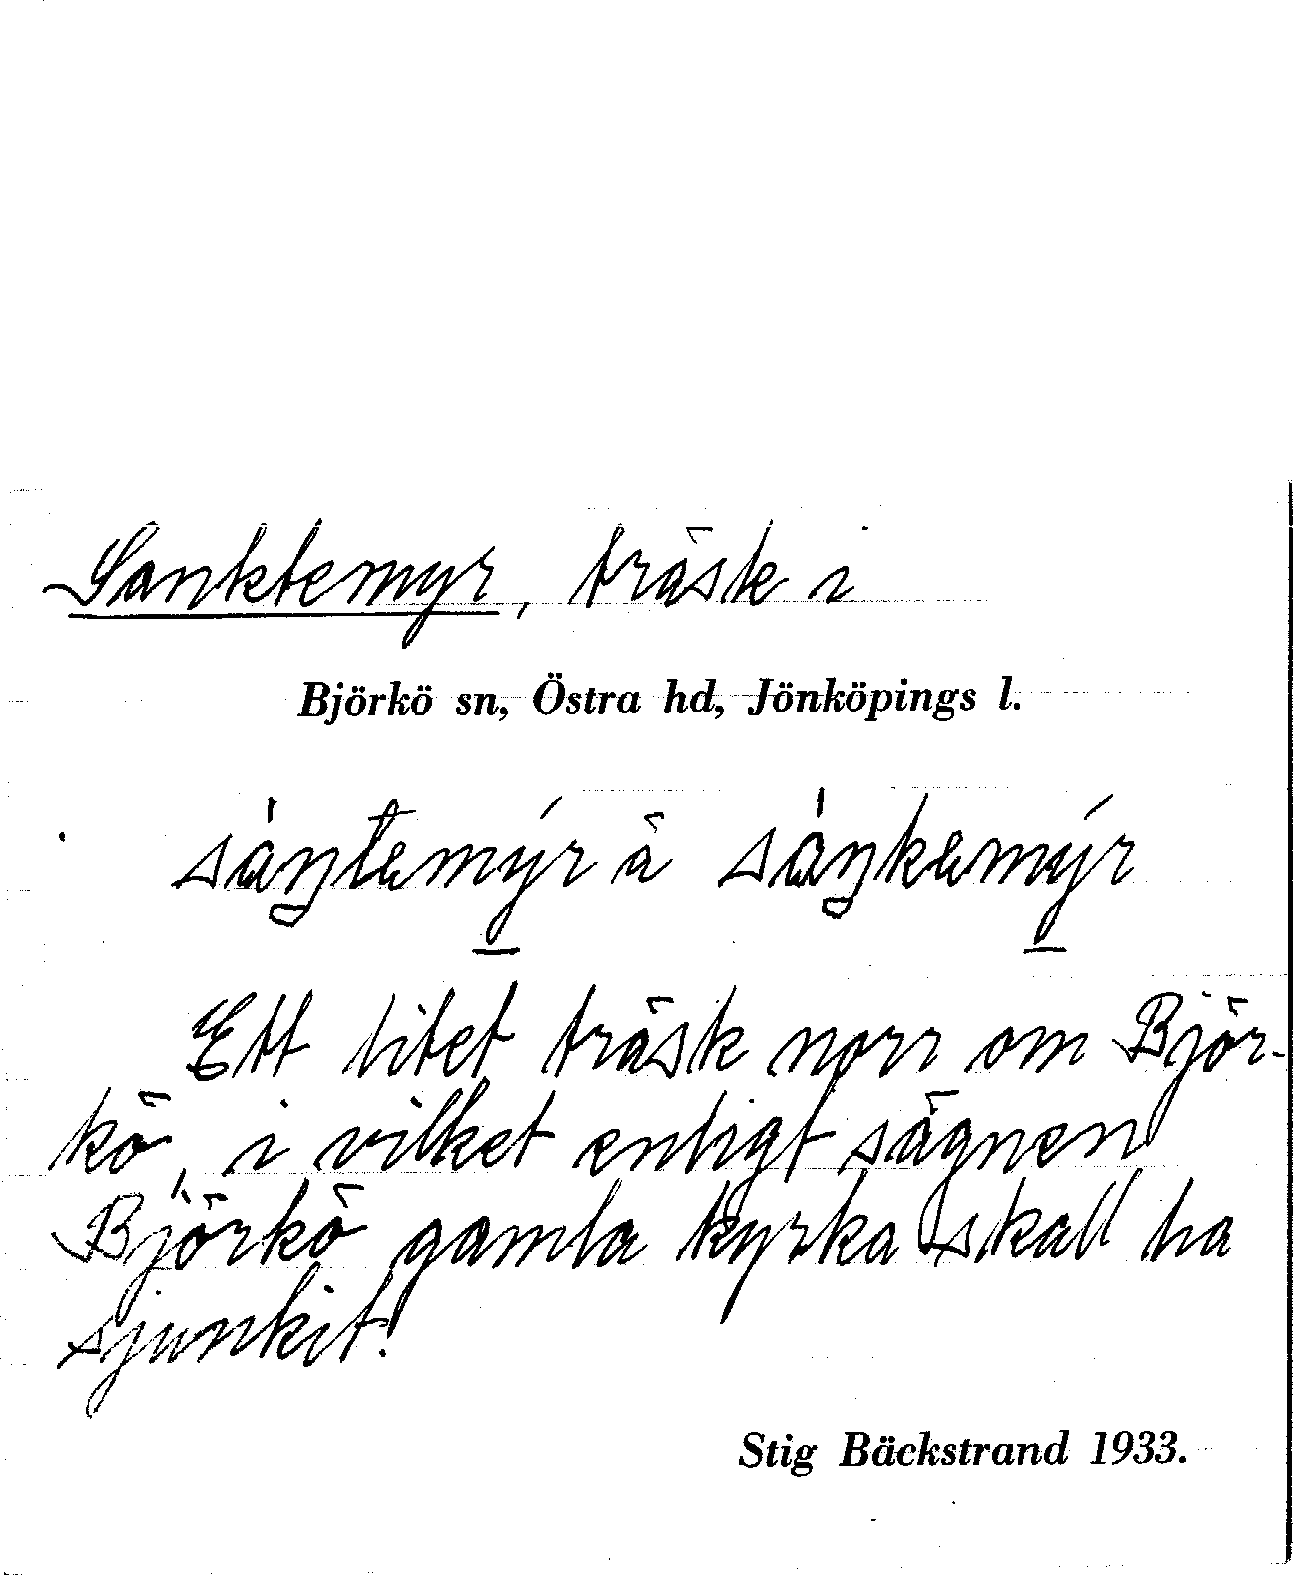 Sanktemyr, träsk i
Björkö sn, Östra hd, Jönköpings l.
sáŋtemýr ä sáŋkemýr
Ett litet träsk norr om Björ-
kö, i vilket enligt sägnen
Björkö gamla kyrka skall ha
sjunkit!
Stig Bäckstrand 1933.